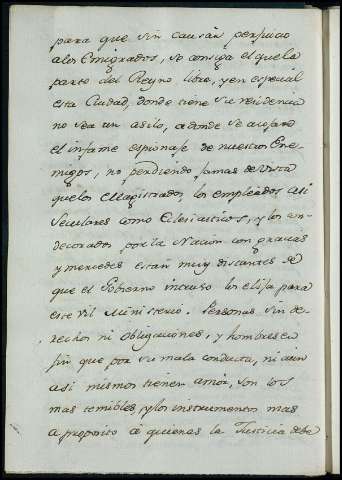 para que sin causar perjuicio
alos Emigrados, se consiga el que la
parte del Reyno libre, y en especial
esta Ciudad, donde tiene su residencia
no sea un asilo, adonde se acojaro
el infame espionaje de nuestros Ene-
migos, no perdiendo jamas de vista
que los Magistrados, los empleados asi
Seculares como Eclesiasticos, y los con-
decorados por la Nacion con gracias
y mercedes estan muy distantes de
que el Gobierno intruso los elija para
este vil Ministerio. Personas sin de-
rechos ni obligaciones, y hombres en
fin que por su mala conducta, ni aun
asi mismos tienen amor, son los
mas temibles, y los instrumentos mas
a proposito á quienes la Justicia debe